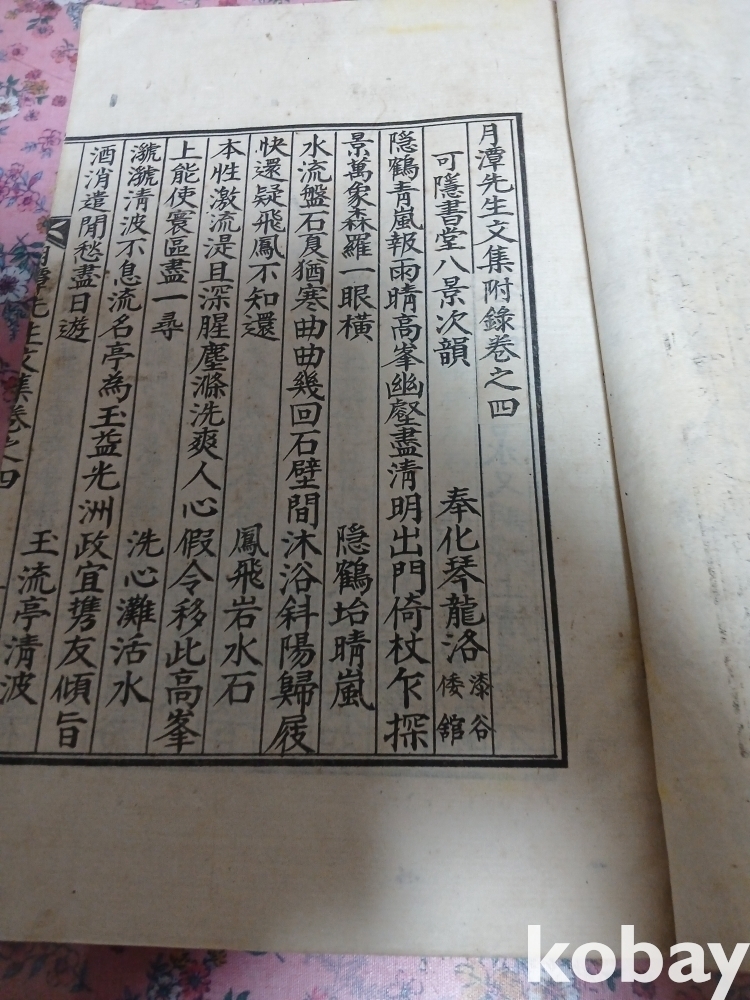 月潭先生文集附錄卷之四
可隱書堂八景次韻 奉化琴龍洛 漆谷倭舘
隱鶴青嵐報雨晴高峯幽壑盡清明出門倚杖乍探
景萬象森羅一眼橫 隱鶴坮晴嵐
水流盤石夏猶寒曲曲幾回石壁間沐浴斜陽歸屐
快還疑飛鳳不知還 鳳飛岩水石
本性激流湜且深腥塵滌洗爽人心假令移此高峯
上能使寰區盡一尋 洗心灘活水
㶁㶁清波不息流名亭為玉益光洲政宜携友傾旨
酒消遣閒愁盡日遊 玉流亭清波
月潭先生文集卷之四
kobay